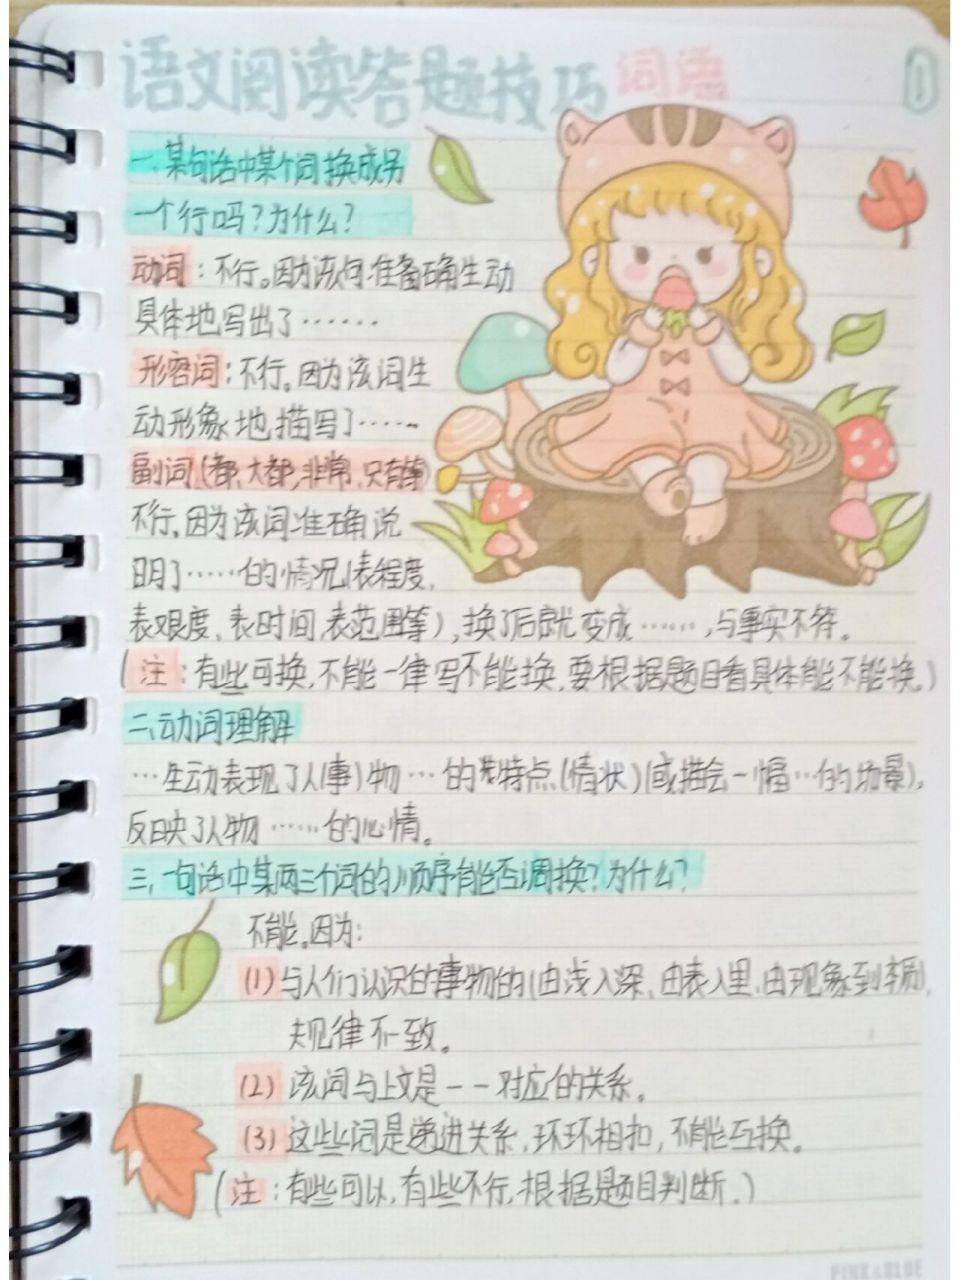 语文阅读答题技巧 词语
1
一.某句话中某个词换成另
一个行吗?为什么?
动词:不行。因为该词准备确生动
具体地写出了……
形容词:不行。因为该词生
动形象地描写了……
副词(都、大都,非常、只有等)
不行。因为该词准确说
明了……的情况(表程度,
表艰度、表时间、表范围等),换了后就变成……,与事实不符。
(注:有些可换,不能一律写不能换,要根据题目看具体能不能换。)
二.动词理解
…生动表现了人(事)物…的特点(情状)(或描绘一幅…的场景),
反映了人物……的心情。
三.一句话中某两三个词的顺序能否调换?为什么?
不能。因为:
(1)与人们认识的事物的(由浅入深、由表入里、由现象到本质)
规律不一致。
(2)该词与上文是一一对应的关系。
(3)这些词是递进关系,环环相扣,不能互换。
(注:有些可以,有些不行,根据题目判断。)
PINK&BLUE